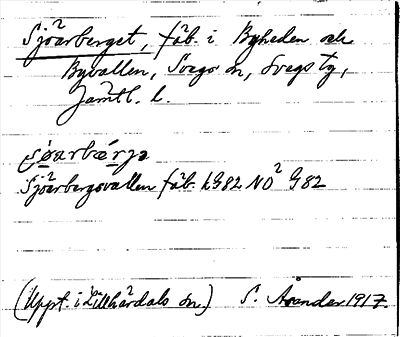 Sjöarberget, fäb. i Byheden och
Byvallen, Svegs sn, Svegs tg,
Jämtl. l.
Sjöarbergsvallen fäb. kG82 NO² G82
(Uppt. i Lillhärdals sn) S. Arander 1917.